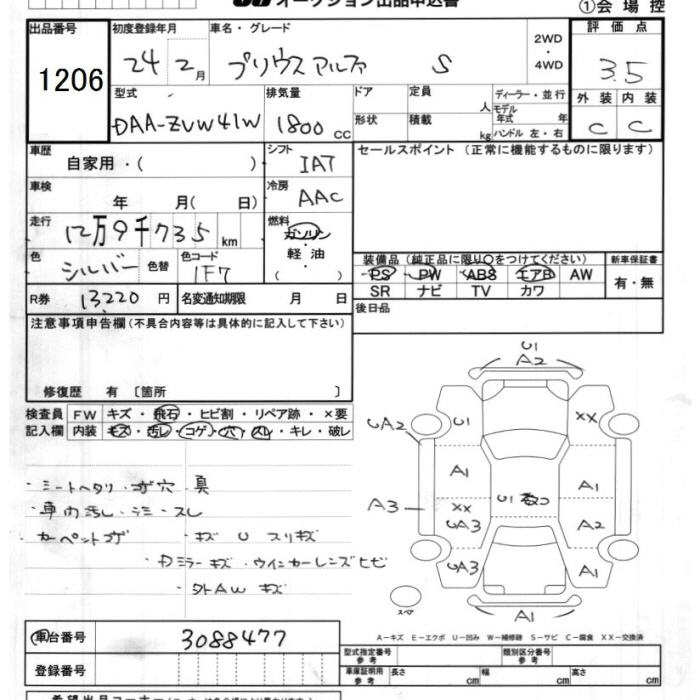 オークション出品申込書
①会場控
出品番号 初度登録年月 車名・グレード 評価点
1206 24 2月 プリウスアルファ S 2WD・4WD 3.5
型式 排気量 ドア 定員 人 ディーラー・並行 外装 内装
DAA-ZVW41W 1800cc 形状 積載 kg モデル年式 年 ハンドル 左・右 C C
車歴 シフト セールスポイント(正常に機能するものに限ります)
自家用・( ) IAT
車検 年 月( 日) 冷房 AAC
走行 12万9千735km 燃料 ガソリン・軽油・( )
色 シルバー 色替 色コード 1F7
装備品(純正品に限り○をつけてください) 新車保証書
PS PW ABS エアB AW 有・無
SR ナビ TV カワ
R券 13220円 名変通知期限 月 日 後日品
注意事項申告欄(不具合内容等は具体的に記入して下さい)
修復歴 有〔箇所 〕
検査員 FW キズ・飛石・ヒビ割・リペア跡・×要
記入欄 内装 キズ・汚レ・コゲ・穴・スレ・キレ・破レ
・シートヘタリ・コゲ穴
・車内汚レ・シミ・スレ
・カーペットコゲ ・キズ U スリキズ
・Dミラーキズ・ウインカーレンズヒビ
・外AW キズ
U1
A2
UA2 U1 XX
A1 A1
A3 XX U1
UA3 A2
UA3 A1
A1
スペア
A-キズ E-エクボ U-凹み W-補修跡 S-サビ C-腐食 XX-交換済
車台番号 3088477
登録番号
型式指定番号 参考 類別区分番号 参考
車庫証明用 参考 長さ cm 幅 cm 高さ cm